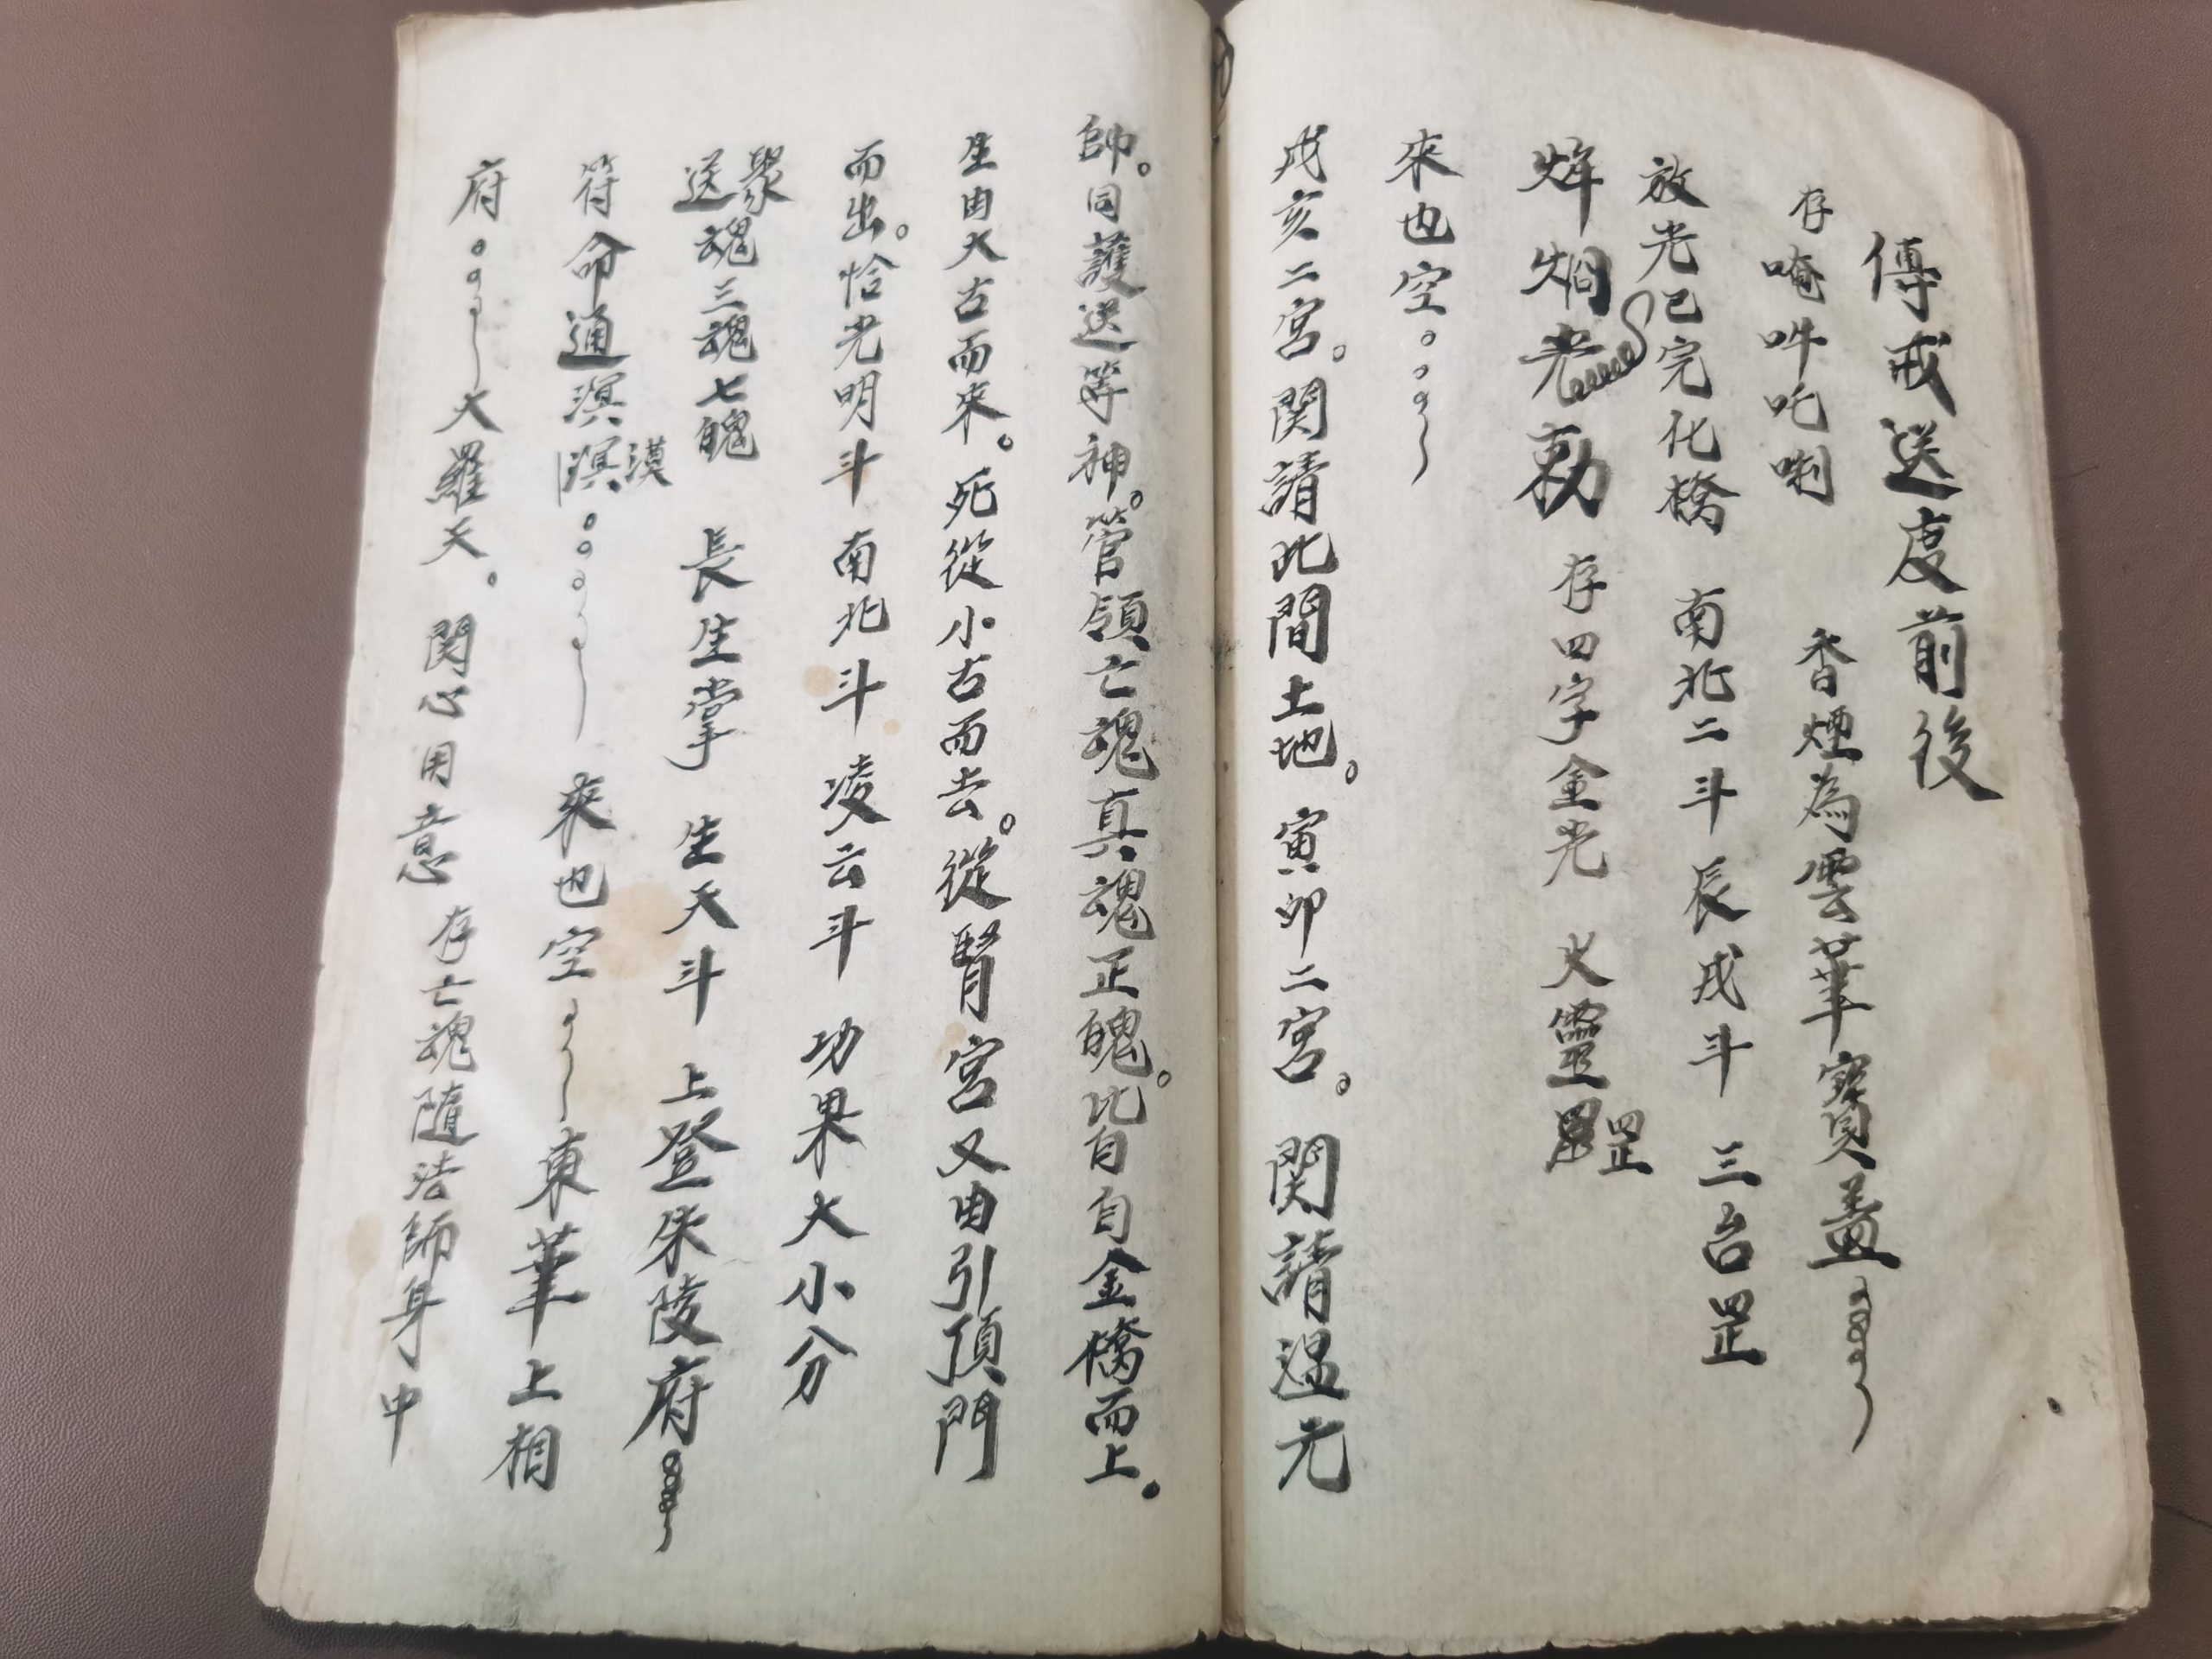 傳戒送度前後
存唵吽吒唎 香煙為雲華寶蓋
放光已完化橋 南北二斗 辰戌斗 三台罡
炯光勑 存四字金光 火靈罡
來也空
戌亥二宮。関請此間土地。寅卯二宮。関請溫元
帥。同護送等神。管領亡魂真魂正魄。比自自金橋而上。
生由大古而來。死從小古而去。從腎宮又由引頂門
而出。恰光明斗 南北斗 凌云斗 功果大小分
送聚魂三魂七魄 長生掌 生天斗 上登朱陵府
符命通溟漠 來也空 東華上相
府 大羅天。関心用意 存亡魂隨法師身中